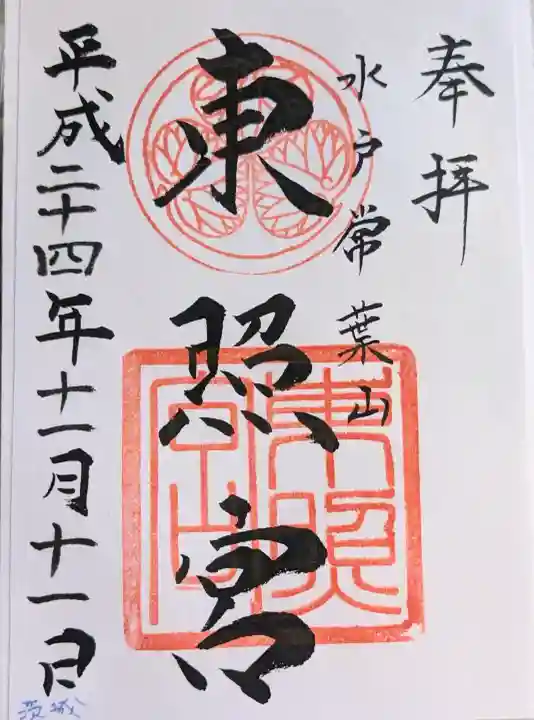 奉拝
水戸常葉山
東照宮
平成二十四年十一月十一日
東照宮
茨城